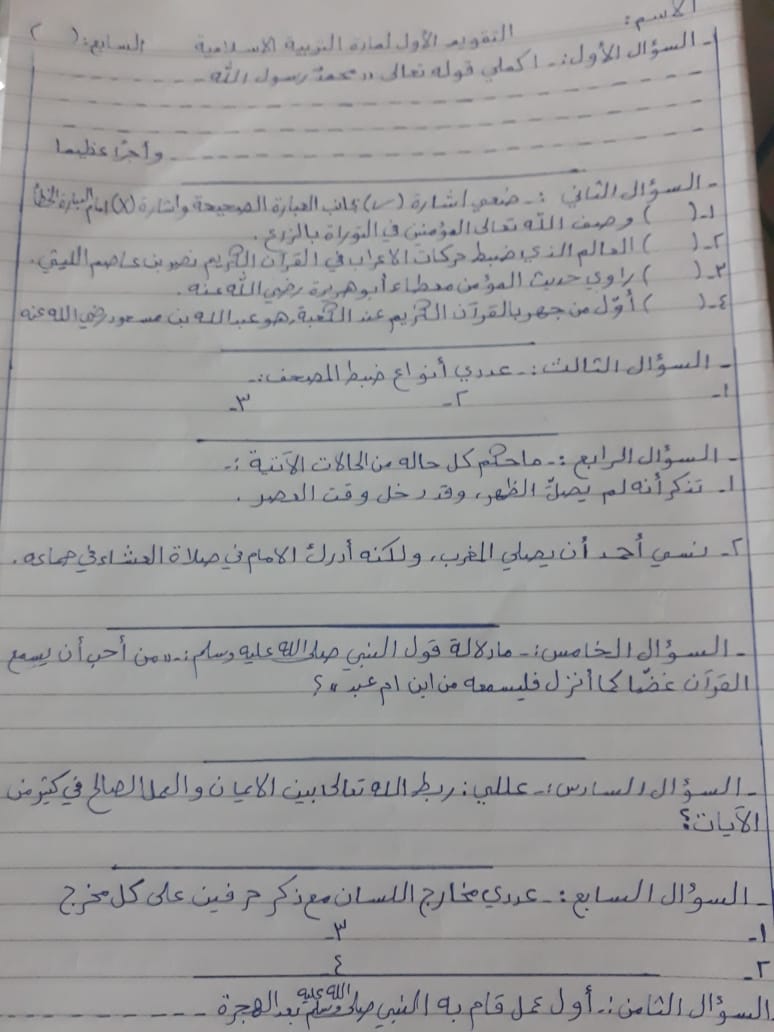 الاسم:
التقويم الأول لمادة التربية الاسلامية السابع: ( )
- السؤال الأول:- اكملي قوله تعالى "محمدٌ رسول الله ---------
--------------------
-------------------- وأجرًا عظيما
- السؤال الثاني :- ضعي اشارة (✓) بجانب العبارة الصحيحة واشارة (X) امام العبارة الخطأ
١- ( ) وصف الله تعالى المؤمنين في التوراة بالزرع.
٢- ( ) العالم الذي ضبط حركات الاعراب في القرآن الكريم نصر بن عاصم الليثي.
٣- ( ) راوي حديث المؤمن معطاء أبو هريرة رضي الله عنه.
٤- ( ) أوّل من جهر بالقرآن الكريم عند الكعبة هو عبدالله بن مسعود رضي الله عنه
- السؤال الثالث:- عددي أنواع ضبط المصحف:-
١- ٢- ٣-
- السؤال الرابع :- ماحكم كل حاله من الحالات الآتية :-
١- تذكر أنه لم يصلِّ الظهر، وقد دخل وقت العصر .
٢- نسي أحمد أن يصلي المغرب، ولكنه أدرك الامام في صلاة العشاء في جماعه.
- السؤال الخامس:- مادلالة قول النبي صلى الله عليه وسلم:- "من أحب أن يسمع
القرآن غضًا كما أنزل فليسمعه من ابن ام عبد"؟
- السؤال السادس:- عللي: ربط الله تعالى بين الايمان والعمل الصالح في كثير من
الآيات؟
- السؤال السابع:- عددي مخارج اللسان مع ذكر حرفين على كل مخرج
١- ٣-
٢- ٤-
السؤال الثامن:- أول عمل قام به النبي صلى الله عليه وسلم بعد الهجرة ---------